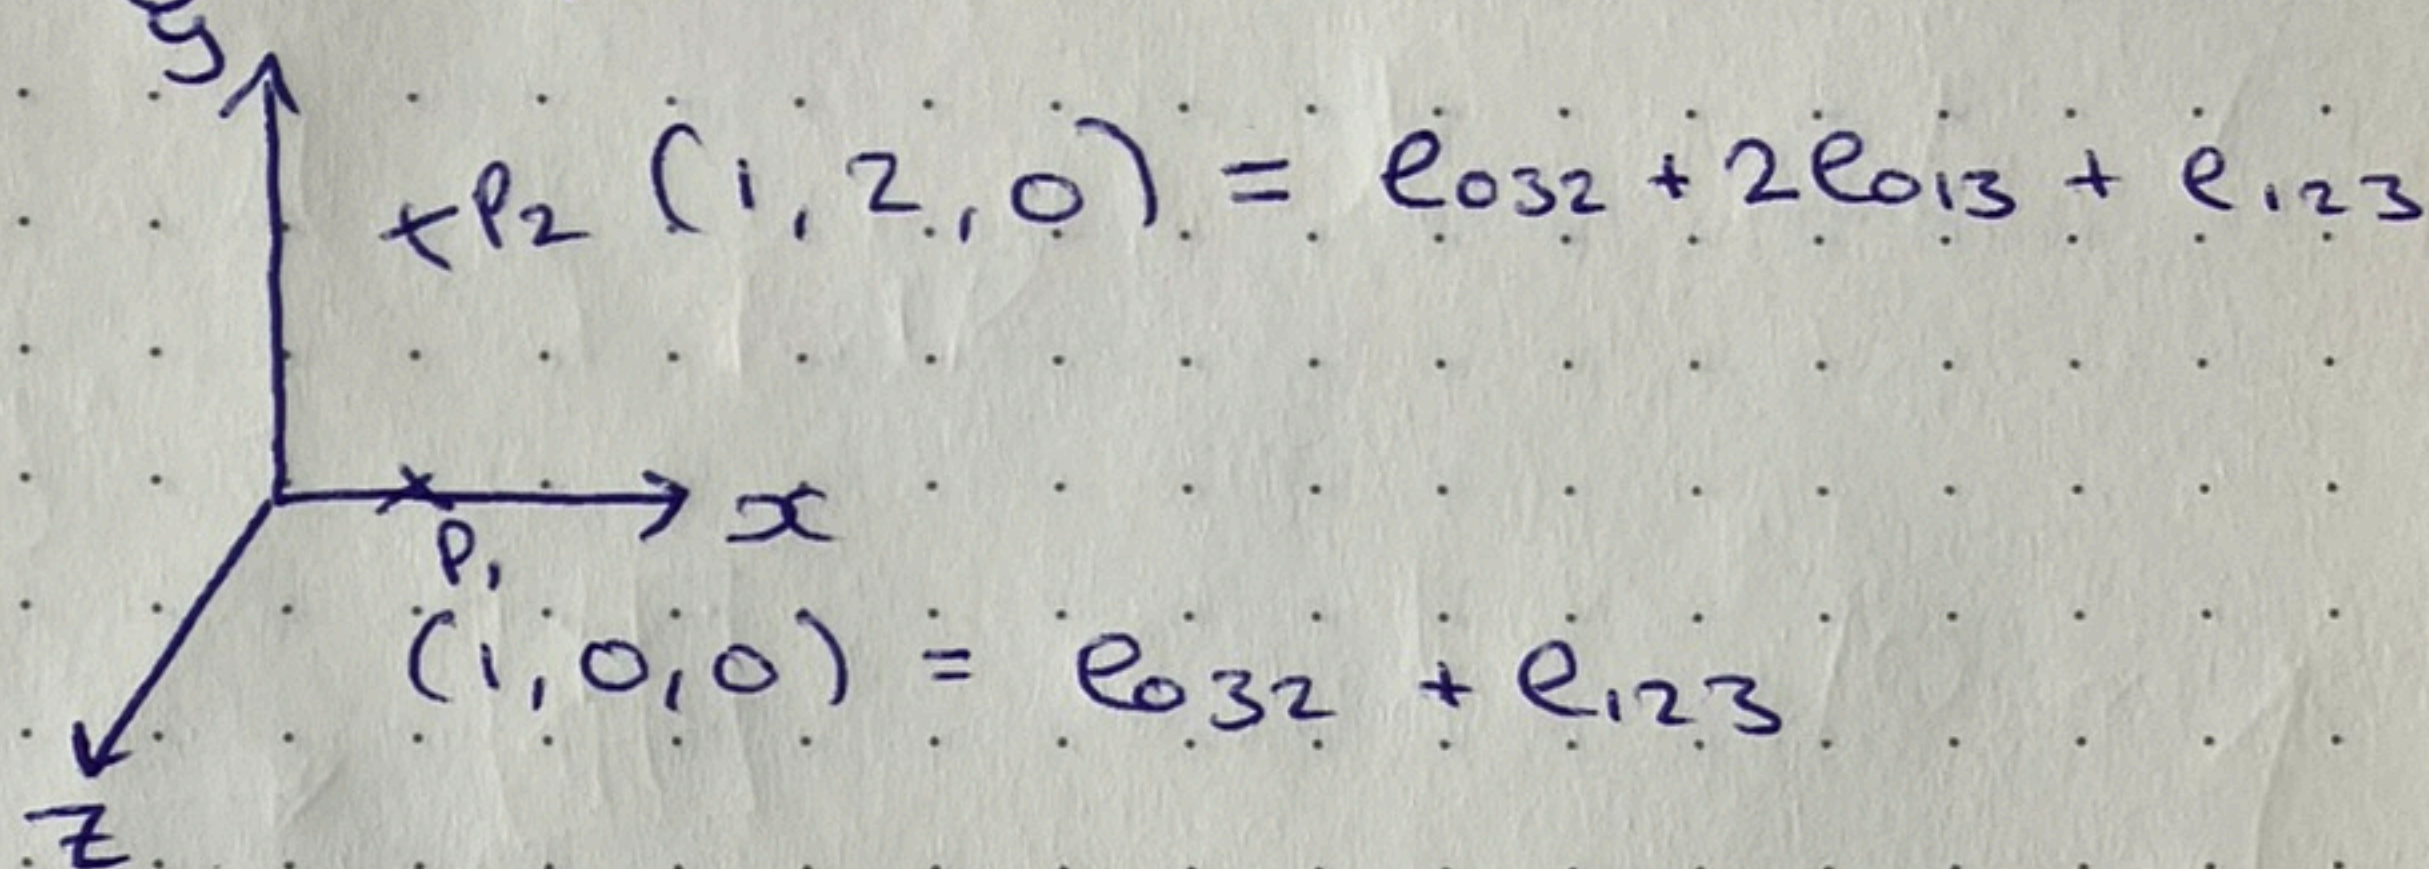 y
P₂ (1, 2, 0) = e₀₃₂ + 2e₀₁₃ + e₁₂₃
x
P₁
(1, 0, 0) = e₀₃₂ + e₁₂₃
z